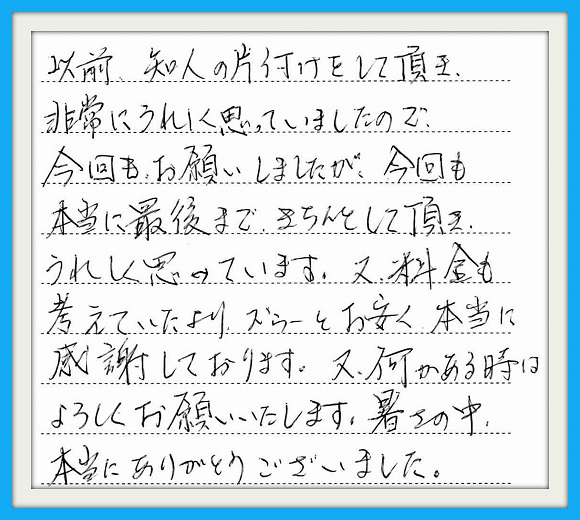 以前、知人の片付けをして頂き、
非常にうれしく思っていましたので、
今回も、お願いしましたが、今回も
本当に最後まで、きちんとして頂き、
うれしく思っています。又、料金も
考えていたより、ズラーとお安く、本当に
感謝しております。又、何かある時は
よろしくお願いいたします。暑さの中、
本当にありがとうございました。